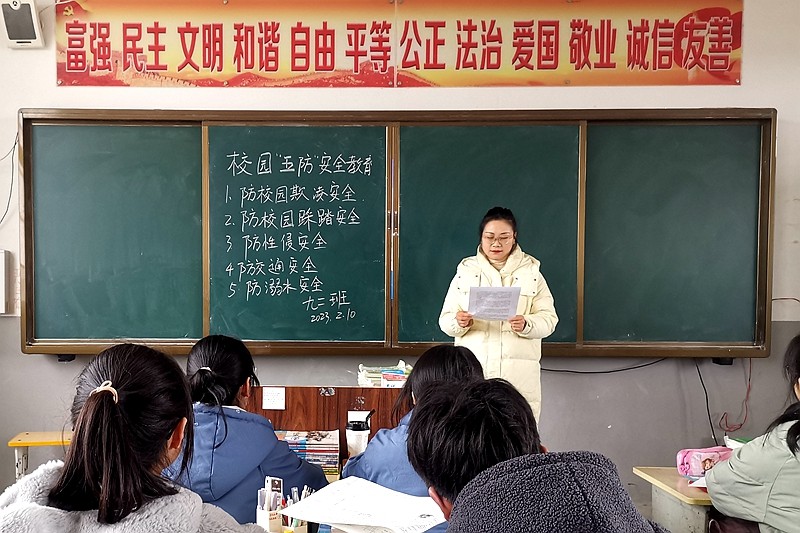 富强 民主 文明 和谐 自由 平等 公正 法治 爱国 敬业 诚信 友善
校园"五防"安全教育
1. 防校园欺凌安全
2. 防校园踩踏安全
3 防性侵安全
4 防交通安全
5 防溺水安全
九二班
2023. 2. 10